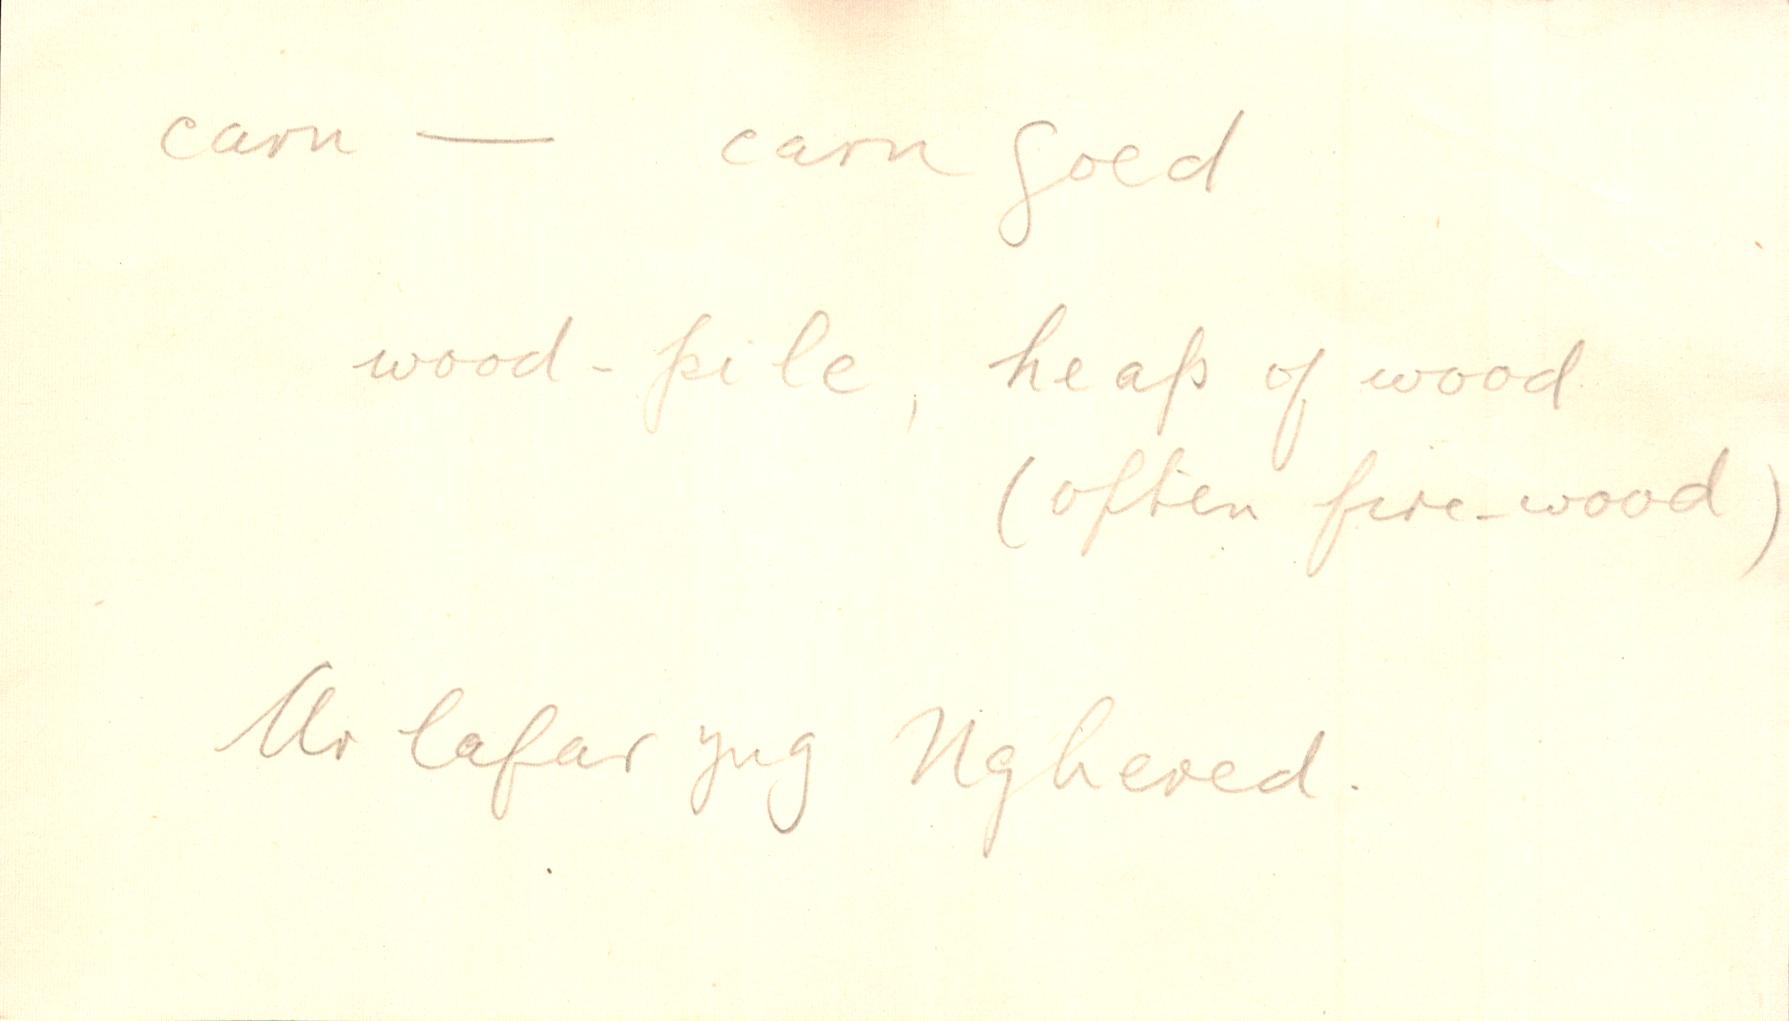 carn — carn goed
wood-pile, heap of wood
(often fire-wood)
Ar lafar yng Nghered.